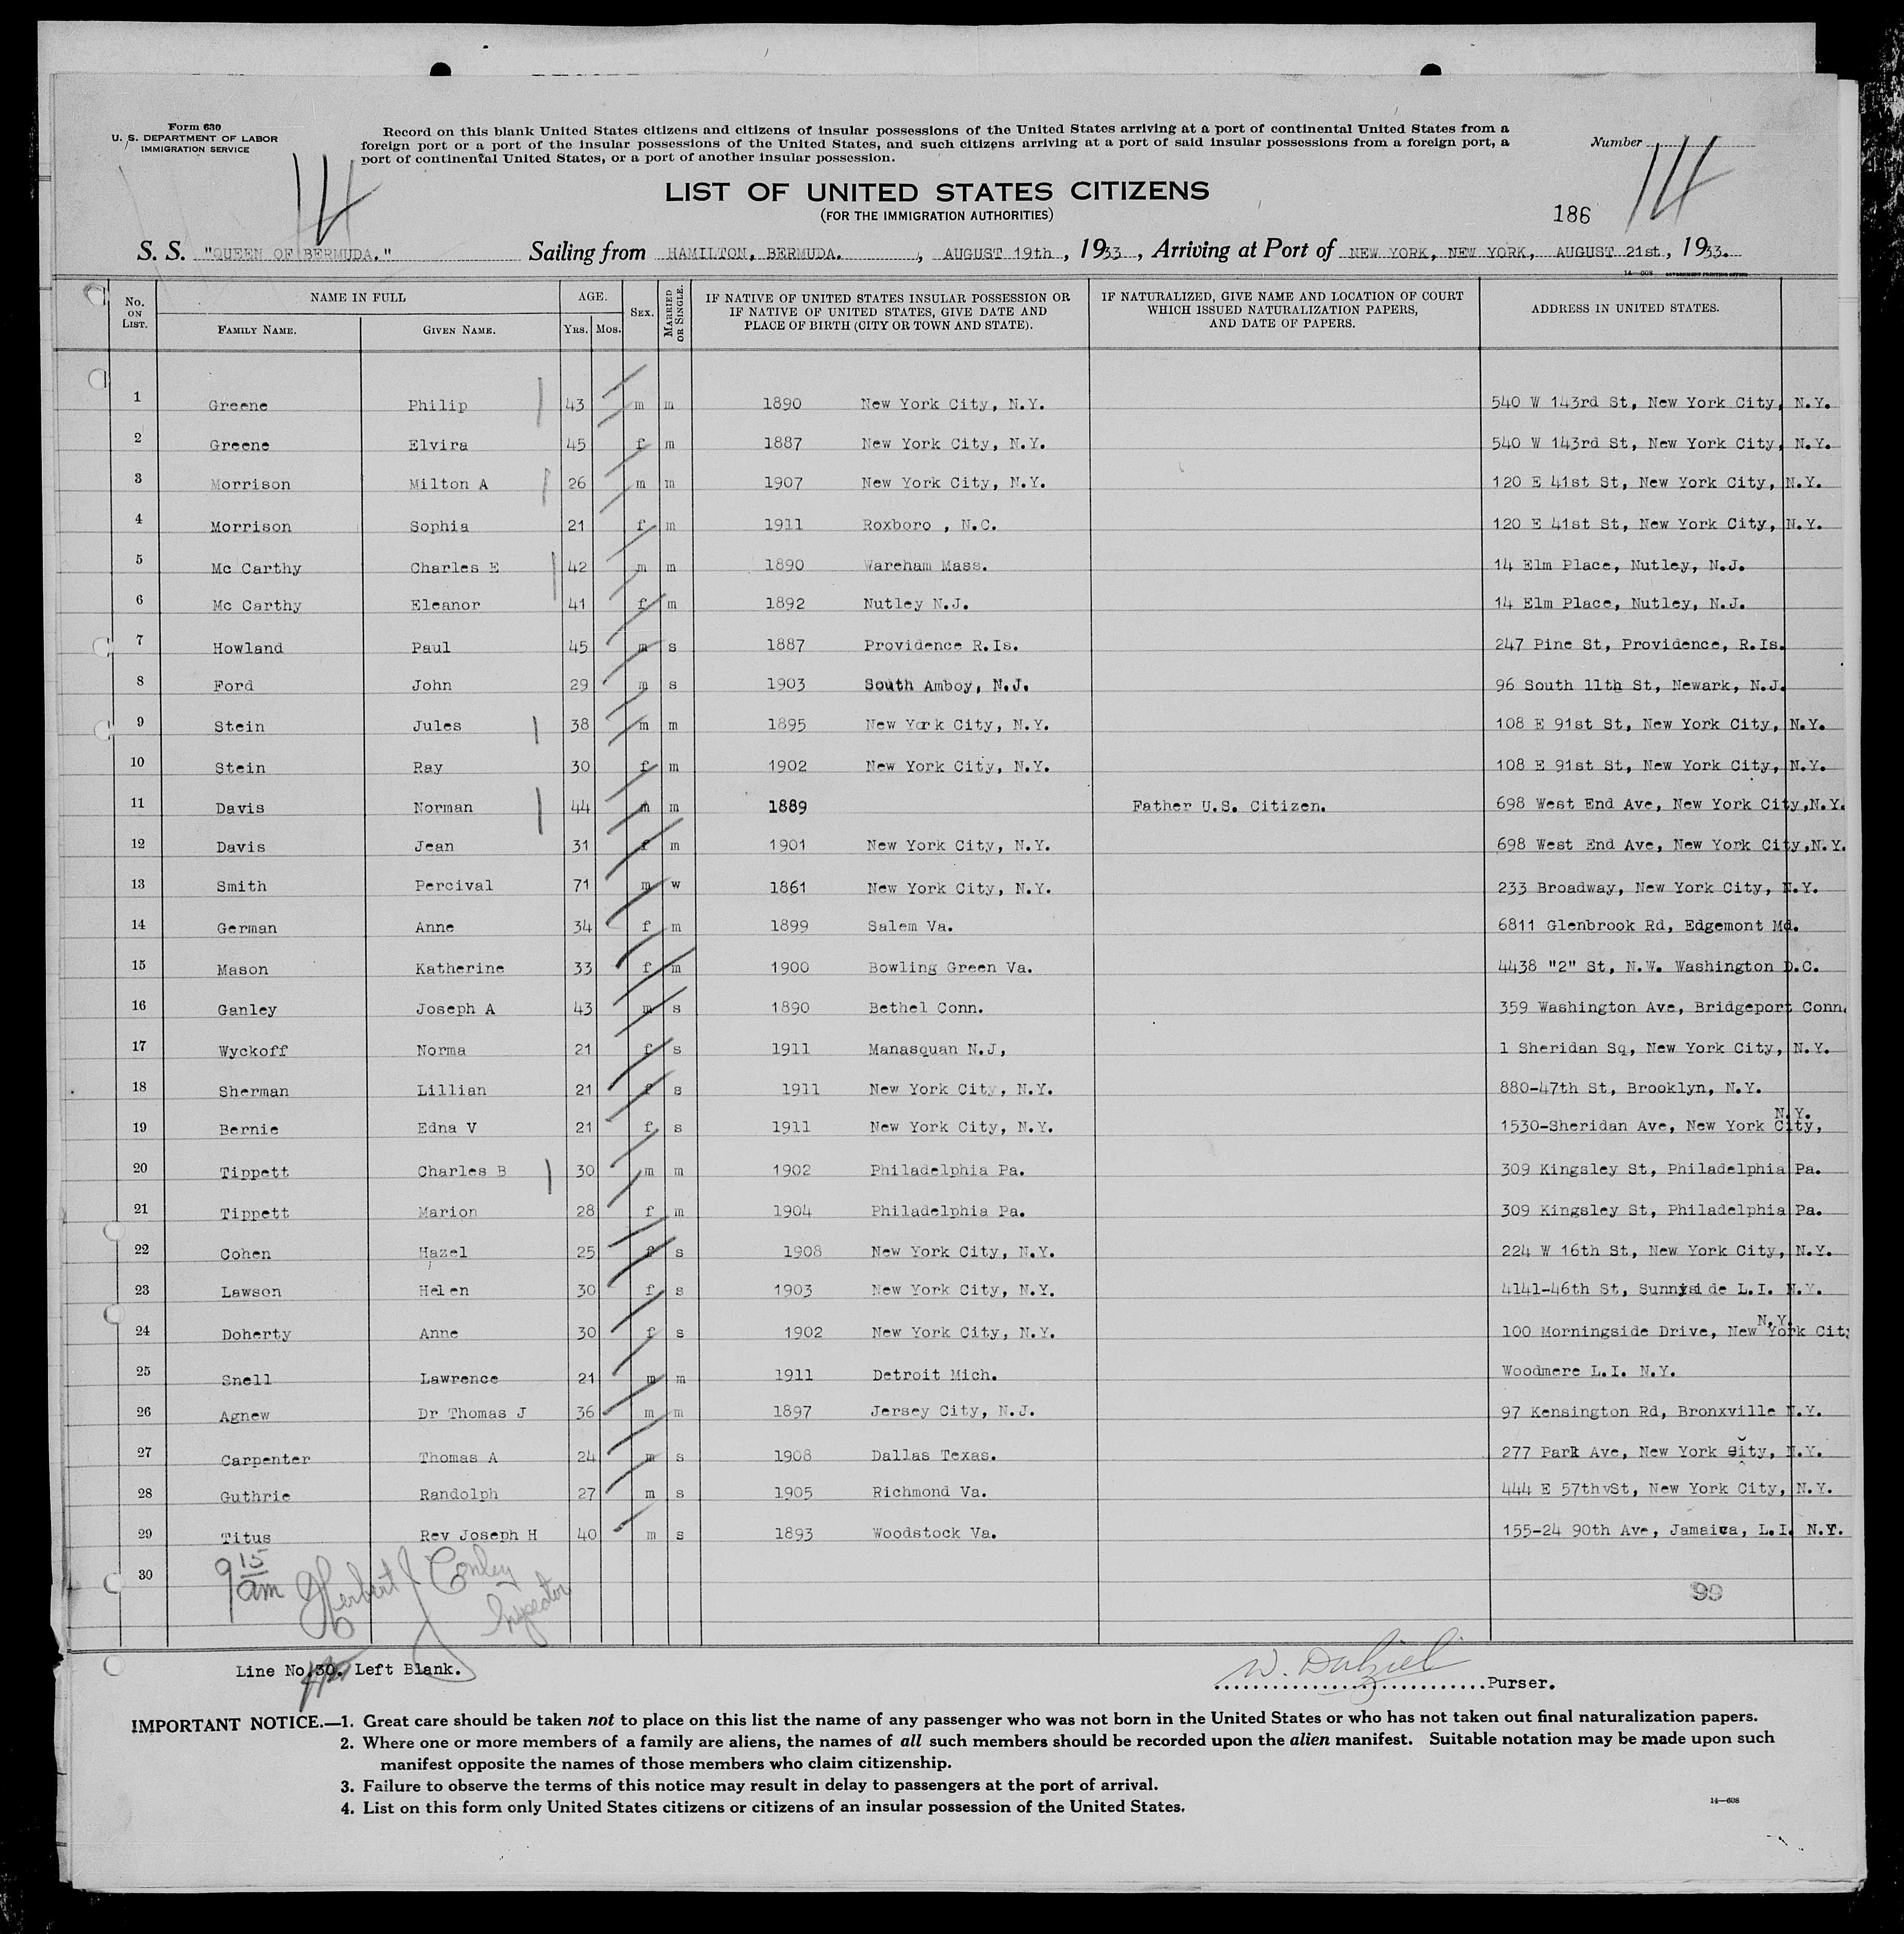 Form 630
U. S. DEPARTMENT OF LABOR
IMMIGRATION SERVICE
Record on this blank United States citizens and citizens of insular possessions of the United States arriving at a port of continental United States from a
foreign port or a port of the insular possessions of the United States, and such citizens arriving at a port of said insular possessions from a foreign port, a
port of continental United States, or a port of another insular possession.
Number
14
14
LIST OF UNITED STATES CITIZENS
(FOR THE IMMIGRATION AUTHORITIES)
186
S. S. "QUEEN OF BERMUDA." Sailing from HAMILTON, BERMUDA. , AUGUST 19th , 1933 , Arriving at Port of NEW YORK, NEW YORK, AUGUST 21st , 1933.
14—608 GOVERNMENT PRINTING OFFICE
No. ON LIST. NAME IN FULL AGE. SEX. MARRIED OR SINGLE. IF NATIVE OF UNITED STATES INSULAR POSSESSION OR IF NATIVE OF UNITED STATES, GIVE DATE AND PLACE OF BIRTH (CITY OR TOWN AND STATE). IF NATURALIZED, GIVE NAME AND LOCATION OF COURT WHICH ISSUED NATURALIZATION PAPERS, AND DATE OF PAPERS. ADDRESS IN UNITED STATES.
FAMILY NAME. GIVEN NAME. YRS. MOS.
1 Greene Philip 43 m m 1890 New York City, N.Y. 540 W 143rd St, New York City, N.Y.
2 Greene Elvira 45 f m 1887 New York City, N.Y. 540 W 143rd St, New York City, N.Y.
3 Morrison Milton A 26 m m 1907 New York City, N.Y. 120 E 41st St, New York City, N.Y.
4 Morrison Sophia 21 f m 1911 Roxboro , N.C. 120 E 41st St, New York City, N.Y.
5 Mc Carthy Charles E 42 m m 1890 Wareham Mass. 14 Elm Place, Nutley, N.J.
6 Mc Carthy Eleanor 41 f m 1892 Nutley N.J. 14 Elm Place, Nutley, N.J.
7 Howland Paul 45 m s 1887 Providence R.Is. 247 Pine St, Providence, R.Is.
8 Ford John 29 m s 1903 South Amboy, N.J. 96 South 11th St, Newark, N.J.
9 Stein Jules 38 m m 1895 New York City, N.Y. 108 E 91st St, New York City, N.Y.
10 Stein Ray 30 f m 1902 New York City, N.Y. 108 E 91st St, New York City, N.Y.
11 Davis Norman 44 m m 1889 Father U.S. Citizen. 698 West End Ave, New York City,N.Y.
12 Davis Jean 31 f m 1901 New York City, N.Y. 698 West End Ave, New York City,N.Y.
13 Smith Percival 71 m w 1861 New York City, N.Y. 233 Broadway, New York City, N.Y.
14 German Anne 34 f m 1899 Salem Va. 6811 Glenbrook Rd, Edgemont Md.
15 Mason Katherine 33 f m 1900 Bowling Green Va. 4438 "2" St, N.W. Washington D.C.
16 Ganley Joseph A 43 m s 1890 Bethel Conn. 359 Washington Ave, Bridgeport Conn.
17 Wyckoff Norma 21 f s 1911 Manasquan N.J, 1 Sheridan Sq, New York City, N.Y.
18 Sherman Lillian 21 f s 1911 New York City, N.Y. 880-47th St, Brooklyn, N.Y.
19 Bernie Edna V 21 f s 1911 New York City, N.Y. 1530-Sheridan Ave, New York City, N.Y.
20 Tippett Charles B 30 m m 1902 Philadelphia Pa. 309 Kingsley St, Philadelphia Pa.
21 Tippett Marion 28 f m 1904 Philadelphia Pa. 309 Kingsley St, Philadelphia Pa.
22 Cohen Hazel 25 f s 1908 New York City, N.Y. 224 W 16th St, New York City, N.Y.
23 Lawson Helen 30 f s 1903 New York City, N.Y. 4141-46th St, Sunnyside L.I. N.Y.
24 Doherty Anne 30 f s 1902 New York City, N.Y. 100 Morningside Drive, New York City N.Y.
25 Snell Lawrence 21 m m 1911 Detroit Mich. Woodmere L.I. N.Y.
26 Agnew Dr Thomas J 36 m m 1897 Jersey City, N.J. 97 Kensington Rd, Bronxville N.Y.
27 Carpenter Thomas A 24 m s 1908 Dallas Texas. 277 Park Ave, New York City, N.Y.
28 Guthrie Randolph 27 m s 1905 Richmond Va. 444 E 57th St, New York City, N.Y.
29 Titus Rev Joseph H 40 m s 1893 Woodstock Va. 155-24 90th Ave, Jamaica, L.I. N.Y.
30
9 15 am Herbert J Conley Inspector
99
Line No.30. Left Blank.
W. Dalziel
Purser.
IMPORTANT NOTICE.—1. Great care should be taken not to place on this list the name of any passenger who was not born in the United States or who has not taken out final naturalization papers.
2. Where one or more members of a family are aliens, the names of all such members should be recorded upon the alien manifest. Suitable notation may be made upon such
manifest opposite the names of those members who claim citizenship.
3. Failure to observe the terms of this notice may result in delay to passengers at the port of arrival.
4. List on this form only United States citizens or citizens of an insular possession of the United States.
14—608